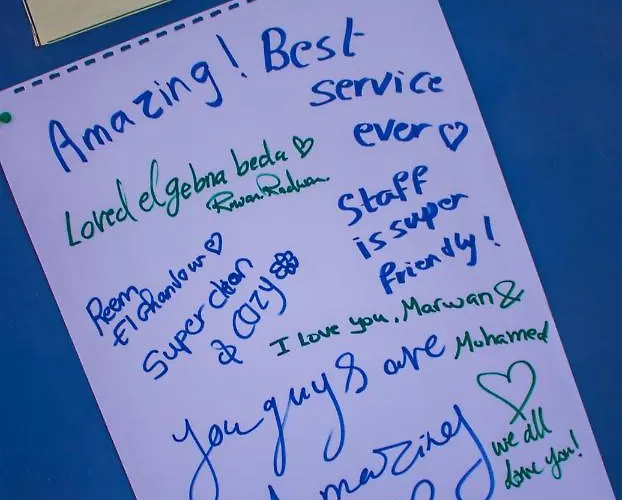 Amazing! Best
service
ever ♡
Loved el gebna beda ♡
Rowan Radwan
Staff
is super
friendly!
Reem
El Ghandour ♡
Super clean
& cozy
I love you, Marwan &
Mohamed
You guys are
Amazing
we all
love you!